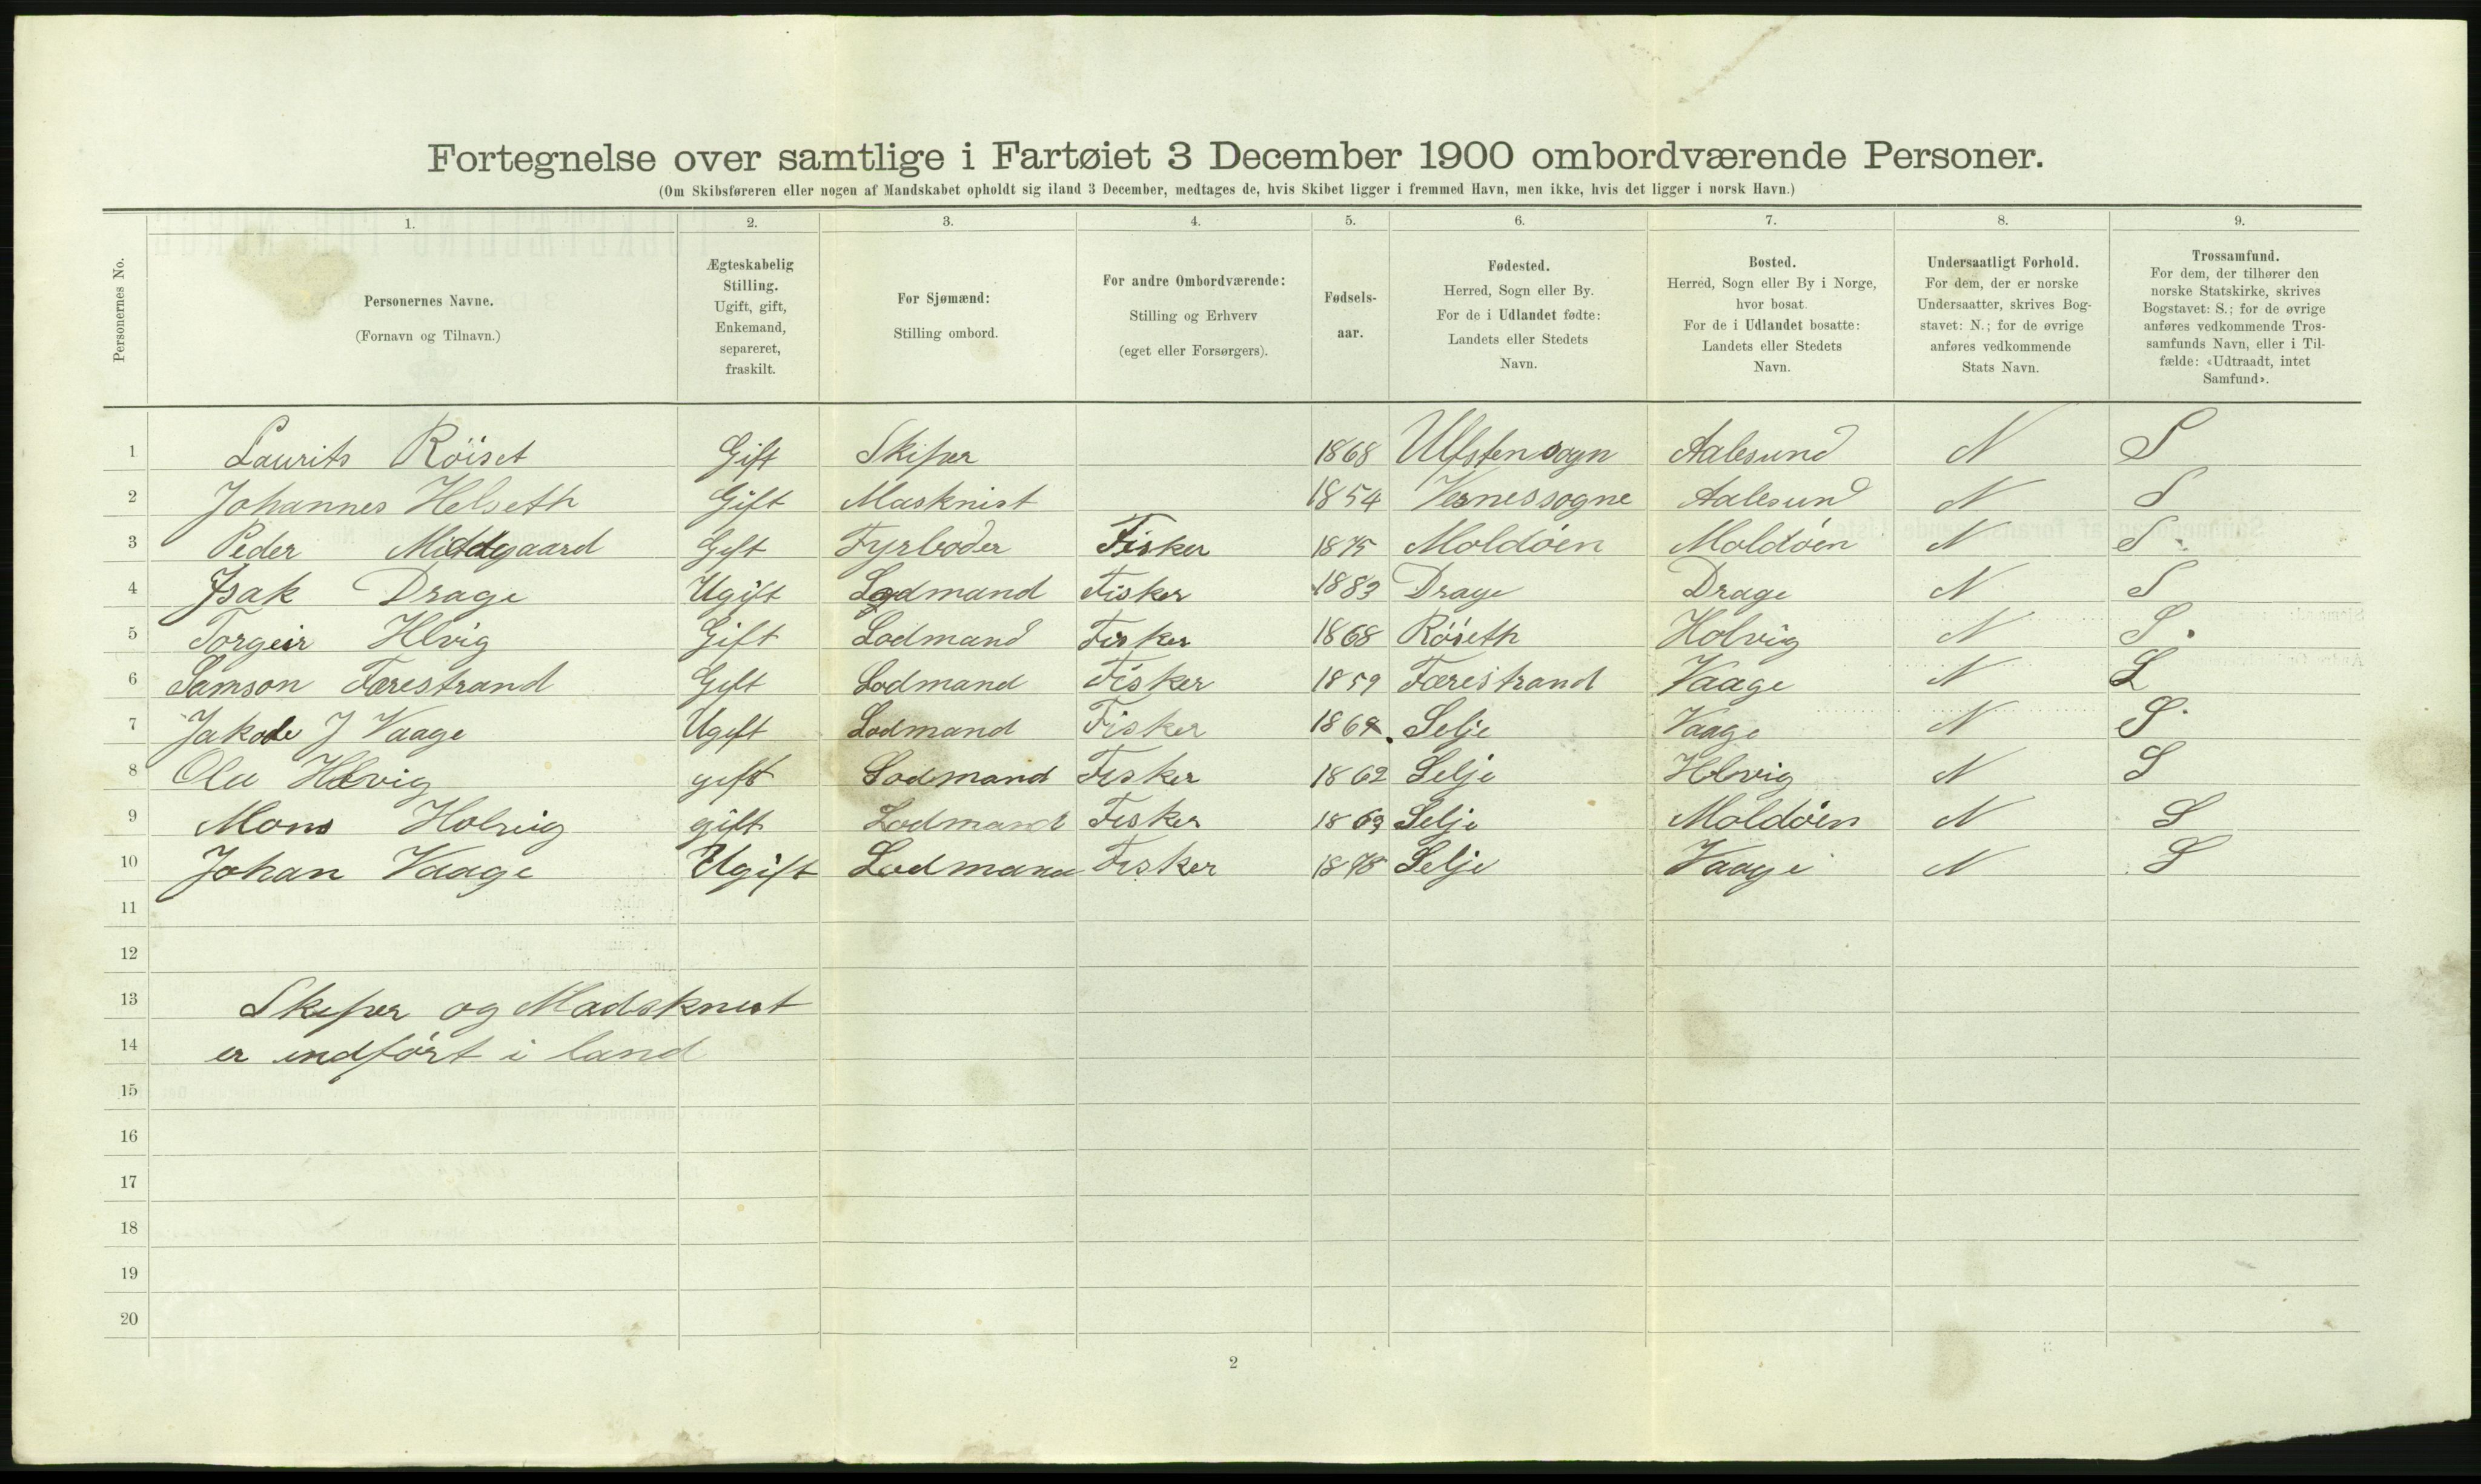 Fortegnelse over samtlige i Fartøiet 3 December 1900 ombordværende Personer.
(Om Skibsføreren eller nogen af Mandskabet opholdt sig iland 3 December, medtages de, hvis Skibet ligger i fremmed Havn, men ikke, hvis det ligger i norsk Havn.)
Personernes No.
1.
Personernes Navne.
(Fornavn og Tilnavn.)
2.
Ægteskabelig
Stilling.
Ugift, gift,
Enkemand,
separeret,
fraskilt.
3.
For Sjømænd:
Stilling ombord.
4.
For andre Ombordværende:
Stilling og Erhverv
(eget eller Forsørgers).
5.
Fødsels-
aar.
6.
Fødested.
Herred, Sogn eller By.
For de i Udlandet fødte:
Landets eller Stedets
Navn.
7.
Bosted.
Herred, Sogn eller By i Norge,
hvor bosat.
For de i Udlandet bosatte:
Landets eller Stedets
Navn.
8.
Undersaatligt Forhold.
For dem, der er norske
Undersaatter, skrives Bog-
stavet: N.; for de øvrige
anføres vedkommende
Stats Navn.
9.
Trossamfund.
For dem, der tilhører den
norske Statskirke, skrives
Bogstavet: S.; for de øvrige
anføres vedkommende Tros-
samfunds Navn, eller i Til-
fælde: «Udtraadt, intet
Samfund».
1 Laurits Röiset Gift Skiper 1868 Ulfsten sogn Aalesund N S
2 Johannes Helseth Gift Masknist 1854 Vernessogne Aalesund N S
3 Peder Middgaard Gift Fyrboder Fisker 1875 Moldöen Moldöen N S
4 Isak Drage Ugift Lodmand Fisker 1883 Drage Drage N S
5 Torgeir Hlvig Gift Lodmand Fisker 1868 Röseth Holvig N S
6 Samson Færestrand Gift Lodmand Fisker 1859 Færestrand Vaage N S
7 Jakob J Vaage Ugift Lodmand Fisker Selje Vaage N S
8 Ola Holvig gift Lodmand Fisker 1862 Selje Holvig N S
9 Mons Holvig gift Lodmand Fisker 1863 Selje Moldöen N S
10 Johan Vaage Ugift Lodmand Fisker 1878 Selje Vaage N S
11
12
13 Skiper og Madsknist
14 er indfört i land
15
16
17
18
19
20
2